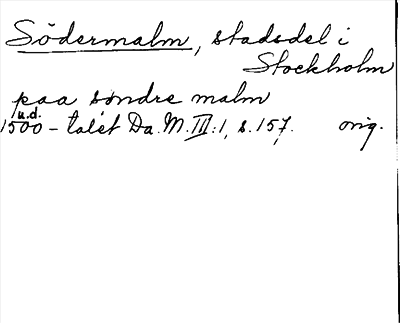 Södermalm, stadsdel i
Stockholm
paa søndre malm
u.d.
1500-talet Da. M. III:1, s. 157. orig.